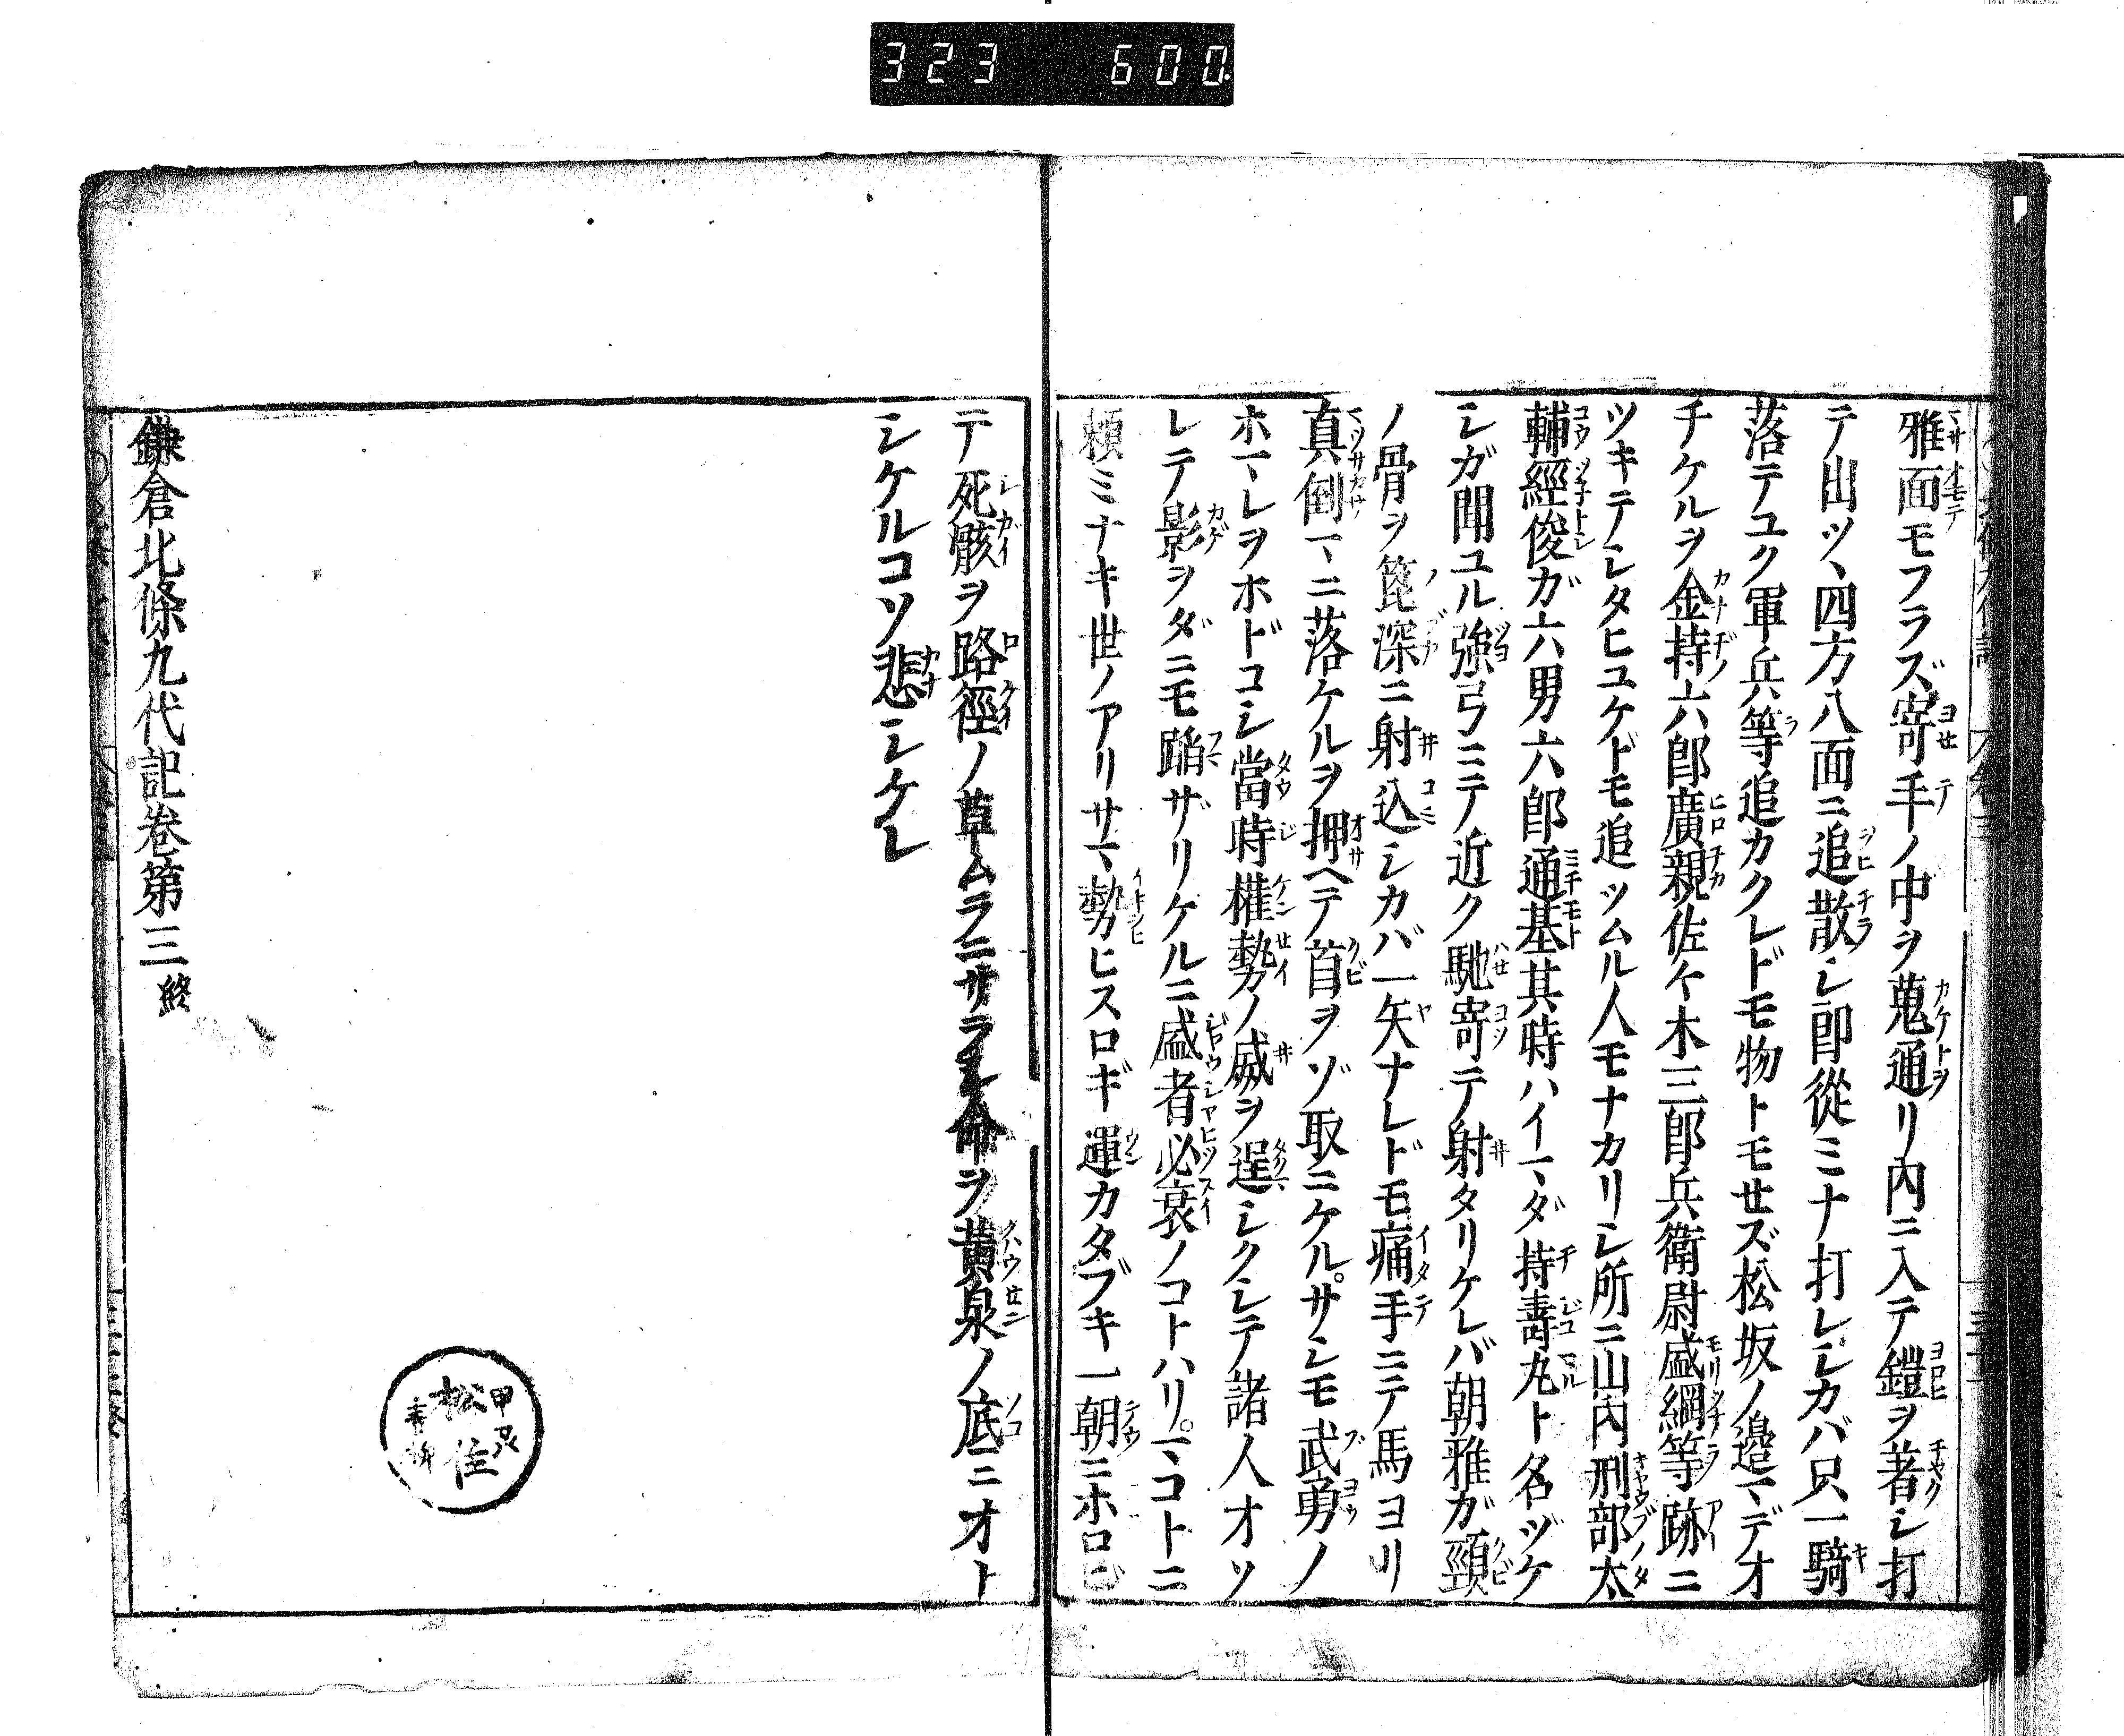 323 600
雅面モフラズ寄手ノ中ヲ蒐通リ内ニ入テ鎧ヲ著シ打
テ出ツヽ四方八面ニ追散シ郎從ミナ打レシカバ只一騎
落テユク軍兵等追カクレドモ物トモセズ松坂ノ邊マデオ
チケルヲ金持六郎廣親佐々木三郎兵衛尉盛綱等跡ニ
ツキテシタヒユケドモ追ツムル人モナカリシ所ニ山内刑部太
輔經俊ガ六男六郎通基其時ハイマダ持壽丸ト名ヅケ
シガ聞ユル強弓ニテ近ク馳寄テ射タリケレバ朝雅ガ頸
ノ骨ヲ箆深ニ射込シカバ一矢ナレドモ痛手ニテ馬ヨリ
真倒マニ落ケルヲ押ヘテ首ヲゾ取ニケル。サシモ武勇ノ
ホマレヲホドコシ當時權勢ノ威ヲ逞シクシテ諸人オソ
レテ影ヲダニモ蹈ザリケルニ盛者必衰ノコトハリ。マコトニ
頼ミナキ世ノアリサマ勢ヒスロギ運カタブキ一朝ニホロビ
テ死骸ヲ路徑ノ草ムラニサラシ命ヲ黄泉ノ底ニオト
シケルコソ悲シケレ
鎌倉北條九代記卷第三終
松住